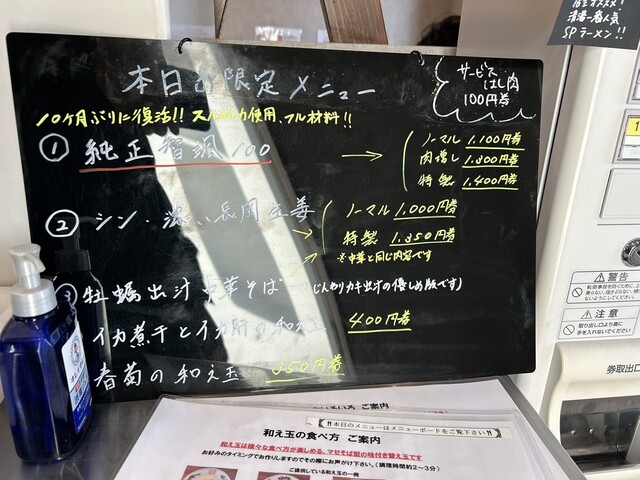 店主オススメ!
清湯一番人気
SPラーメン!!
本日の限定メニュー
サービス
はし肉
100円券
10ヶ月ぶりに復活!! スルメイカ使用、フル材料!!
① 純正 100 →
ノーマル 1,100円券
肉増し 1,300円券
特製 1,400円券
② シン・濃い長岡生姜
ノーマル 1,000円券
特製 1,350円券
※中華と同じ内容です
③ 牡蠣出汁中華そば (じんわりカキ出汁の優しめ版です)
イカ煮干とイカ の和え玉 400円券
春菊の和え玉 350円券
警告
注意
取り出し口より奥に
手を入れないでください
券取出口
!!本日のメニューはメニューボードをご覧下さい!!
和え玉の食べ方 ご案内
和え玉は様々な食べ方が楽しめる、マゼそば型の味付き替え玉です
お好みのタイミングでお作りしますのでその際にお声がけ下さい。(調理時間約2~3分)
ご提供している和え玉の一例